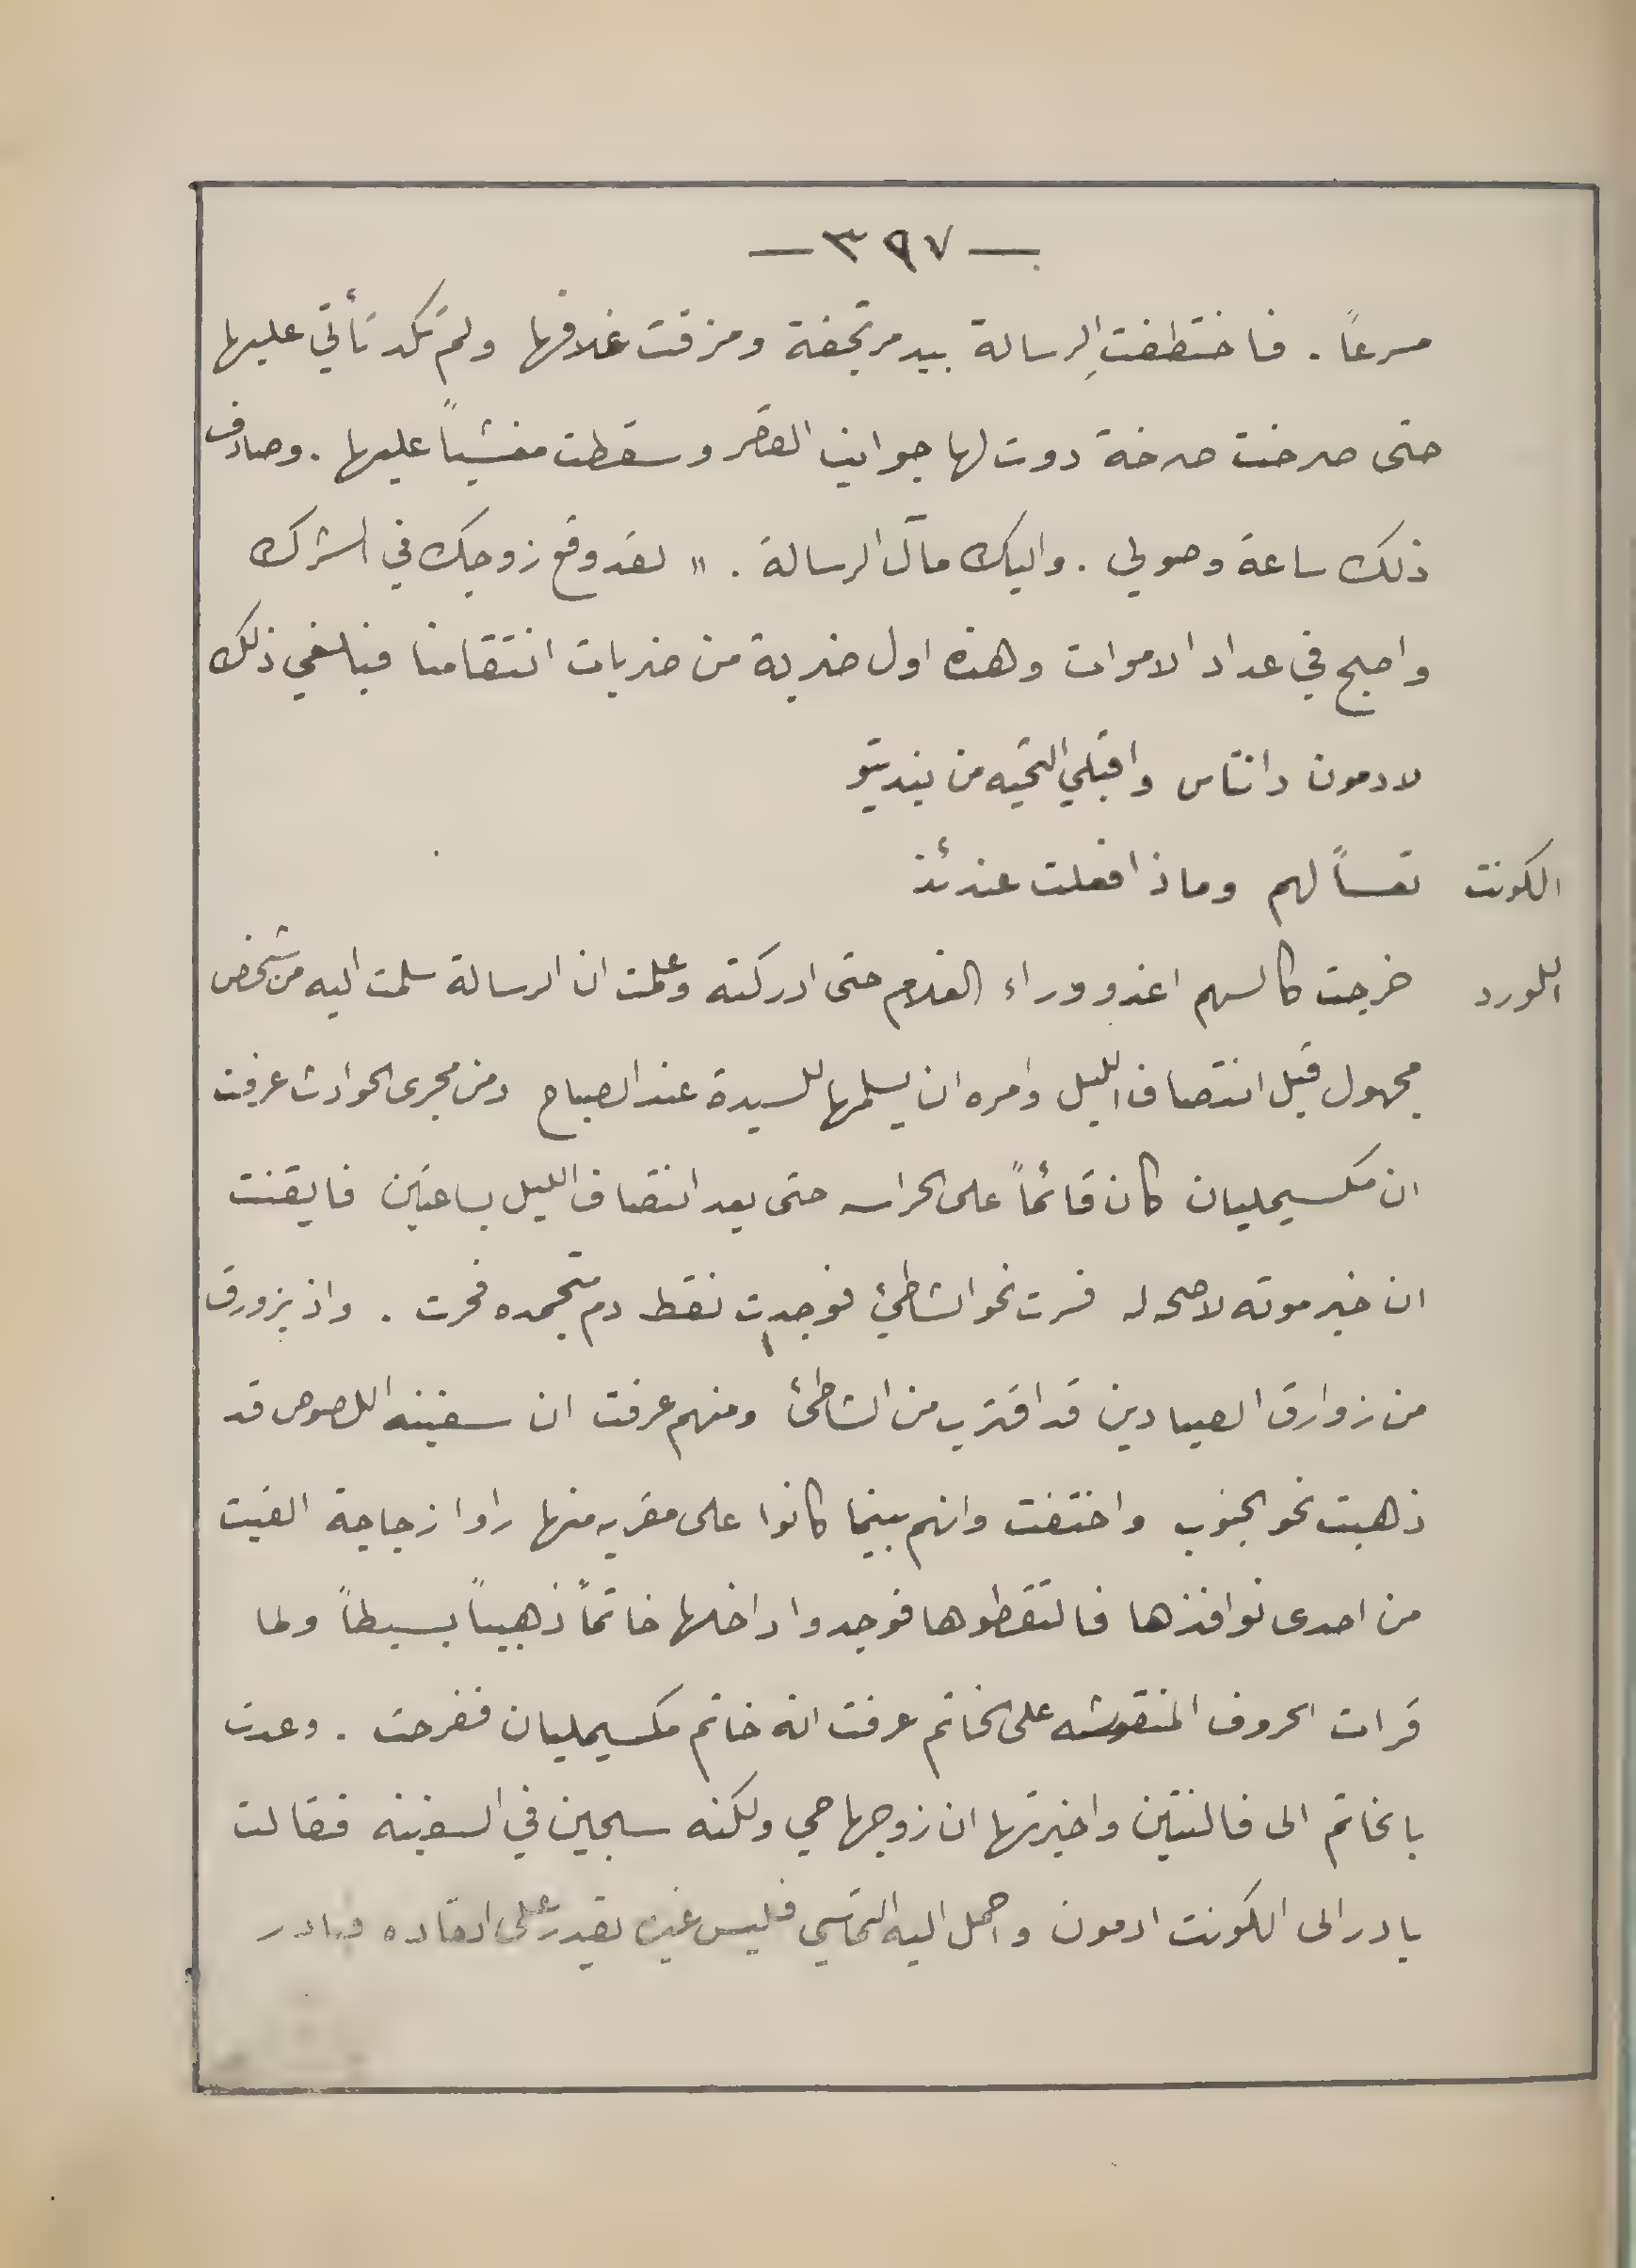 — ٣٩٧ —
مسرعاً . فاختطفت الرسالة بيد مرتجفة ومزقت غلافها ولم تكد تأتي عليها
حتى صرخت صرخة دوت لها جوانب القصر وسقطت مغشياً عليها . وصادف
ذلك ساعة وصولي . واليك مآل الرسالة . " لقد وقع زوجك في الشرك
واصبح في عداد الاموات وهذه اول ضربة من ضربات انتقامنا فبلغي ذلك
لادمون دانتاس واقبلي التحيه من بنديتو
الكونت تعساً لهم وماذا فعلت عندئذ
اللورد خرجت كالسهم اغدو وراء الغلام حتى ادركته وعلمت ان الرسالة سلمت اليه من شخص
مجهول قبل انتصاف الليل وامره ان يسلمها للسيدة عند الصباح ومن مجرى الحوادث عرفت
ان مكسيميليان كان قائماً على الحراسه حتى بعد انتصاف الليل بساعتين فايقنت
ان خبر موته لا صحه له فسرت نحو الشاطئ فوجدت نقط دم متجمده فحرت . واذ بزورق
من زوارق الصيادين قد اقترب من الشاطئ ومنهم عرفت ان سفينه اللصوص قد
ذهبت نحو الجنوب واختفت وانهم بينما كانوا على مقربه منها راوا زجاجة القيت
من احدى نوافذها فالتقطوها فوجدوا داخلها خاتماً ذهبياً بسيطاً ولما
قرات الحروف المنقوشه على الخاتم عرفت انه خاتم مكسيميليان ففرحت . وعدت
بالخاتم الى فالنتين واخبرتها ان زوجها حي ولكنه سجين في السفينه فقالت
بادر الى الكونت ادمون واحمل اليه التماسي فليس غيره يقدر على انقاذه فبادر